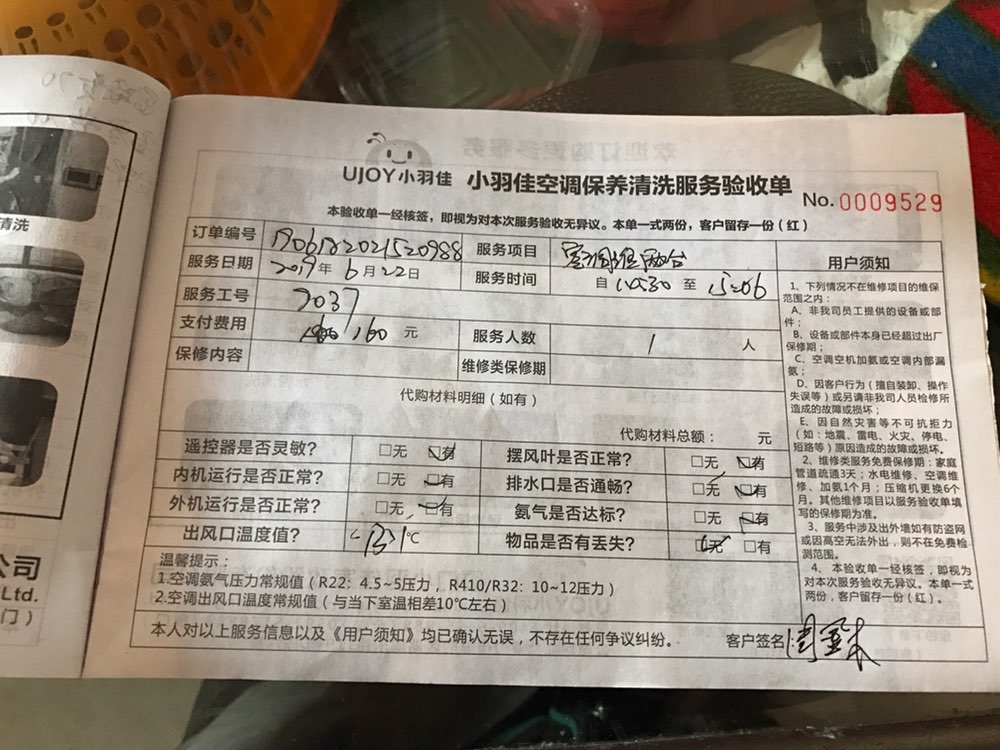 清洗
公司
Ltd.
门）
UJOY小羽佳 小羽佳空调保养清洗服务验收单
No. 0009529
本验收单一经核签，即视为对本次服务验收无异议。本单一式两份，客户留存一份（红）
订单编号 1906182021520988 服务项目
服务日期 2019年6月22日 服务时间 自 至 15:06
服务工号 7037
支付费用 160 元 服务人数 1 人
保修内容 维修类保修期
代购材料明细（如有）
代购材料总额： 元
遥控器是否灵敏? □无 □有 摆风叶是否正常? □无 □有
内机运行是否正常? □无 □有 排水口是否通畅? □无 □有
外机运行是否正常? □无 □有 氨气是否达标? □无 □有
出风口温度值? ℃ 物品是否有丢失? □无 □有
温馨提示：
1.空调氨气压力常规值（R22：4.5~5压力，R410/R32：10~12压力）
2.空调出风口温度常规值（与当下室温相差10℃左右）
本人对以上服务信息以及《用户须知》均已确认无误，不存在任何争议纠纷。 客户签名:
用户须知
1、下列情况不在维修项目的维保
范围之内：
A、非我司员工提供的设备或部
件；
B、设备或部件本身已经超过出厂
保修期；
C、空调空机加氨或空调内部漏
氨；
D、因客户行为（擅自装卸、操作
失误等）或另请非我司人员检修所
造成的故障或损坏；
E、因自然灾害等不可抗拒力
（如：地震、雷电、火灾、停电、
短路等）原因造成的故障或损坏。
2、维修类服务免费保修期：家庭
管道疏通3天；水电维修、空调维
修、加氨1个月；压缩机更换6个
月。其他维修项目以服务验收单填
写的保修期为准。
3、服务中涉及出外墙如有防盗网
或因高空无法外出，则不在免费检
测范围。
4、本验收单一经核签，即视为
对本次服务验收无异议。本单一式
两份，客户留存一份（红）。